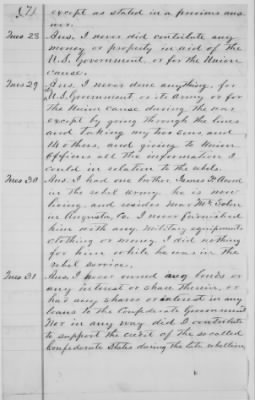 571 except as stated in a previous ans
wer.
Ques 28 Ans. I never did contribute any
money or property in aid of the
U.S. Government, or for the Union
cause.
Ques 29 Ans. I never done anything for
U.S. Government or its army or for
the Union cause during the war
except by going through the lines
and taking my two sons and
others, and giving to Union
Officers all the information I
could in relation to the rebels.
Ques 30 Ans. I had one brother James
in the rebel army, he is now
living and resides near
in Augusta, Co. I never furnished
him with any military equipments
clothing or money. I did nothing
for him while he was in the
rebel service.
Ques 31 Ans. I never owned any bonds or
any interest or share therein, or
had any shares or interest in any
loans to the Confederate Government
Nor in any way did I contribute
to support the credit of the so called
Confederate States during the late rebellion.